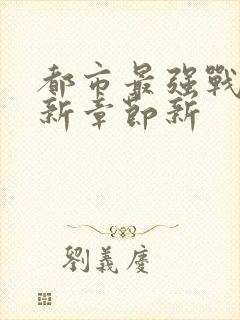 都市最强戰
新章節新
劉義慶